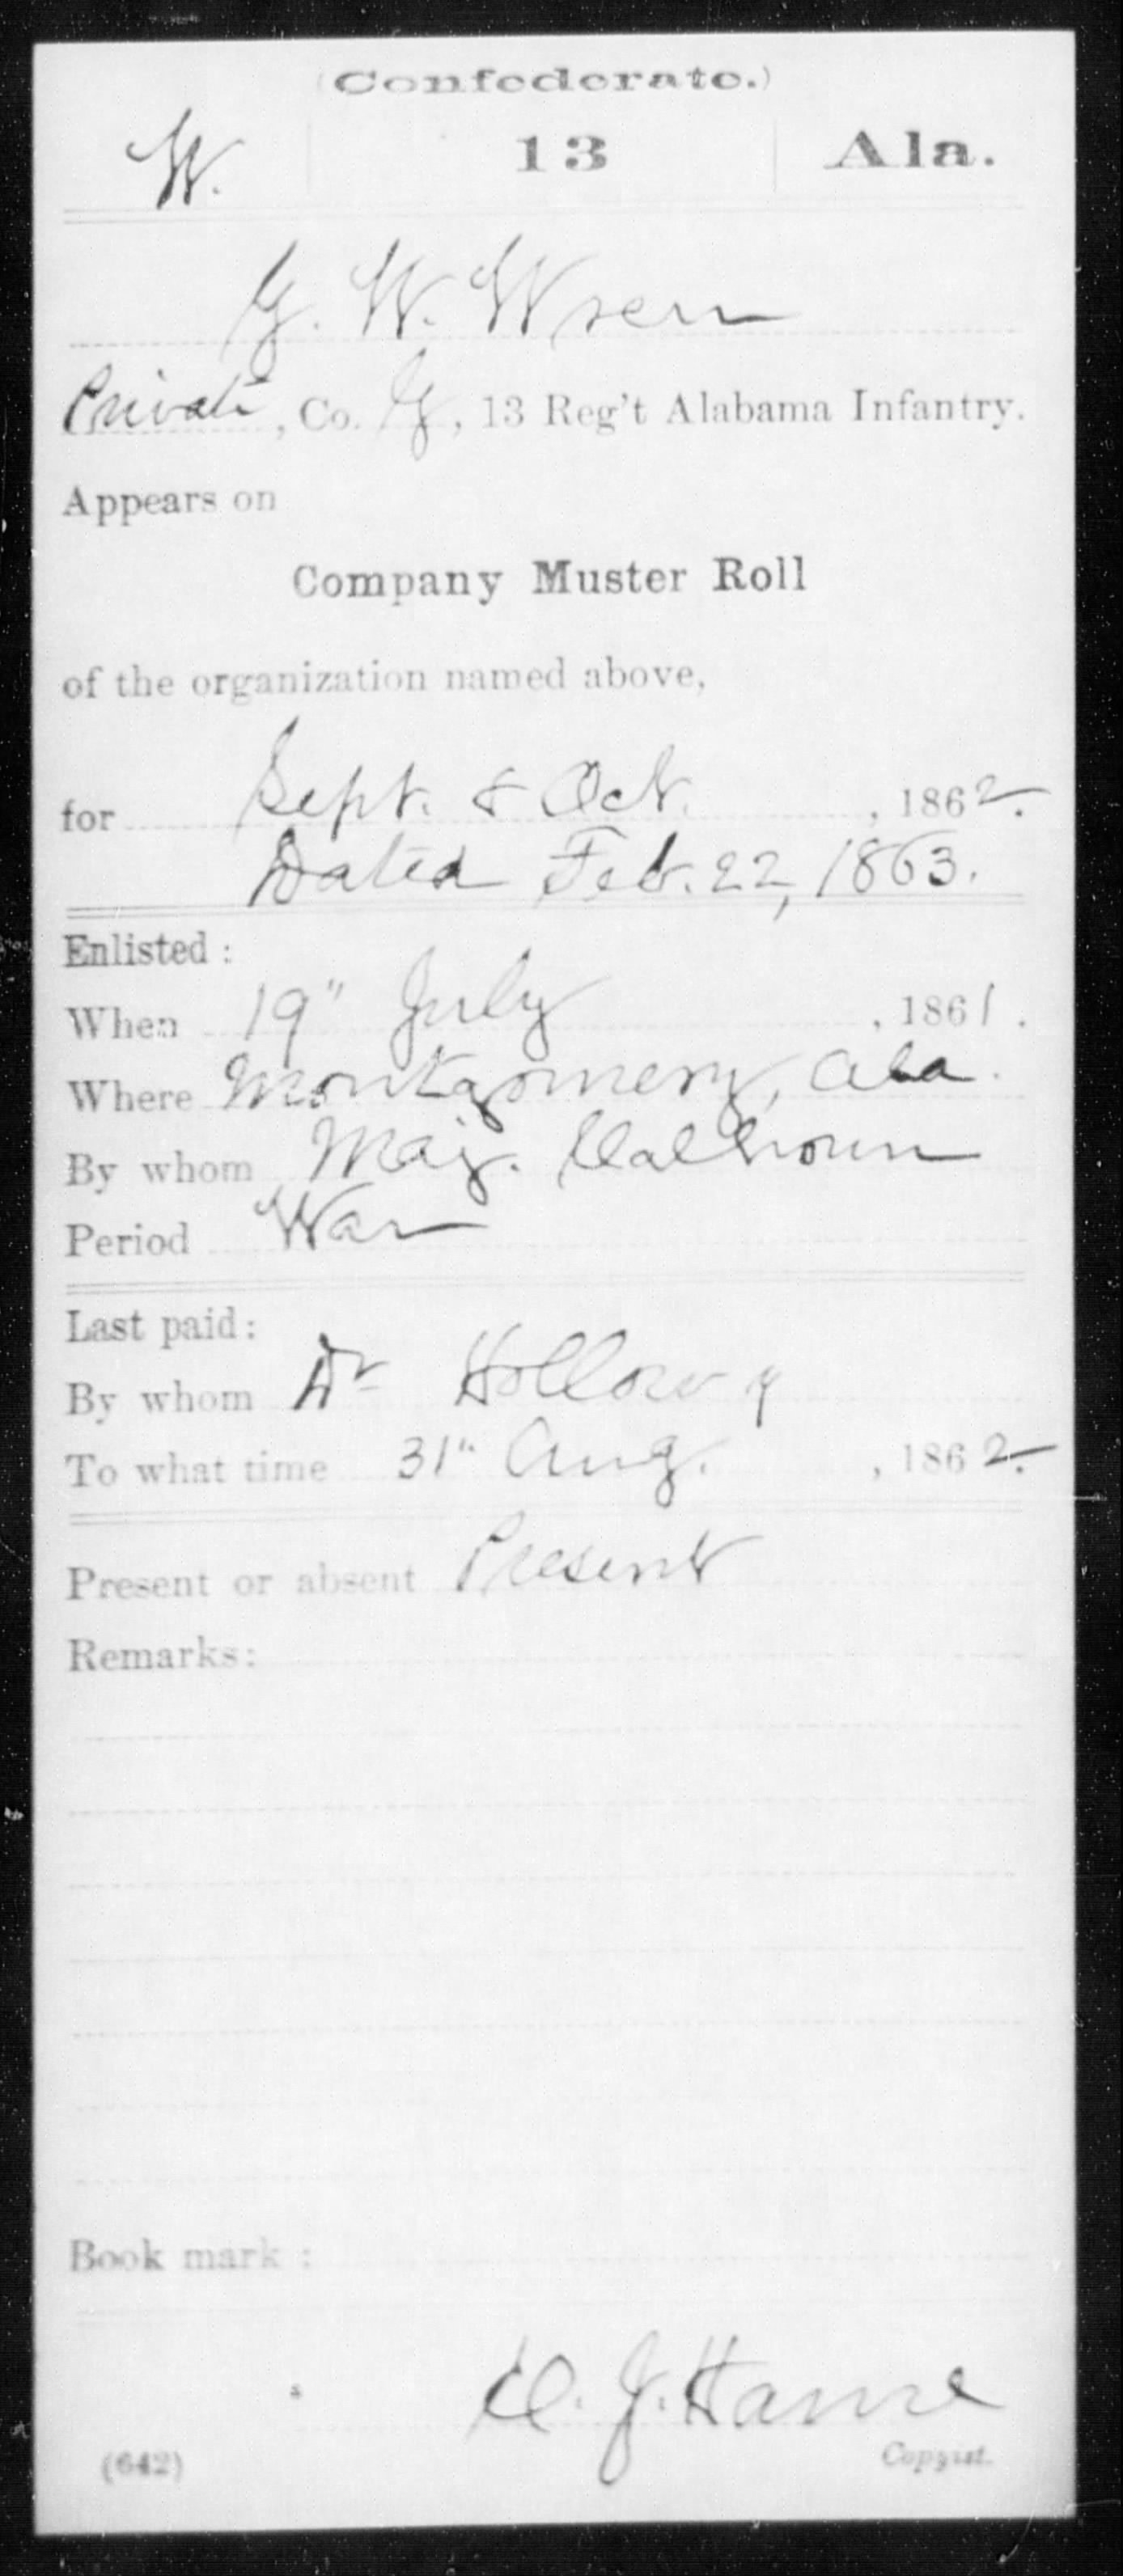 (Confederate.)
W. 13 Ala.
G. W. Wren
Private, Co. G, 13 Reg't Alabama Infantry.
Appears on
Company Muster Roll
of the organization named above,
for Sept. & Oct. , 1862.
Dated Feb. 22, 1863.
Enlisted:
When 19" July , 1861.
Where Montgomery, Ala.
By whom Maj. Calhoun
Period War
Last paid:
By whom Dr Hollow y
To what time 31" Aug. , 1862.
Present or absent Present
Remarks:
Book mark:
J.
(642) Copyist.